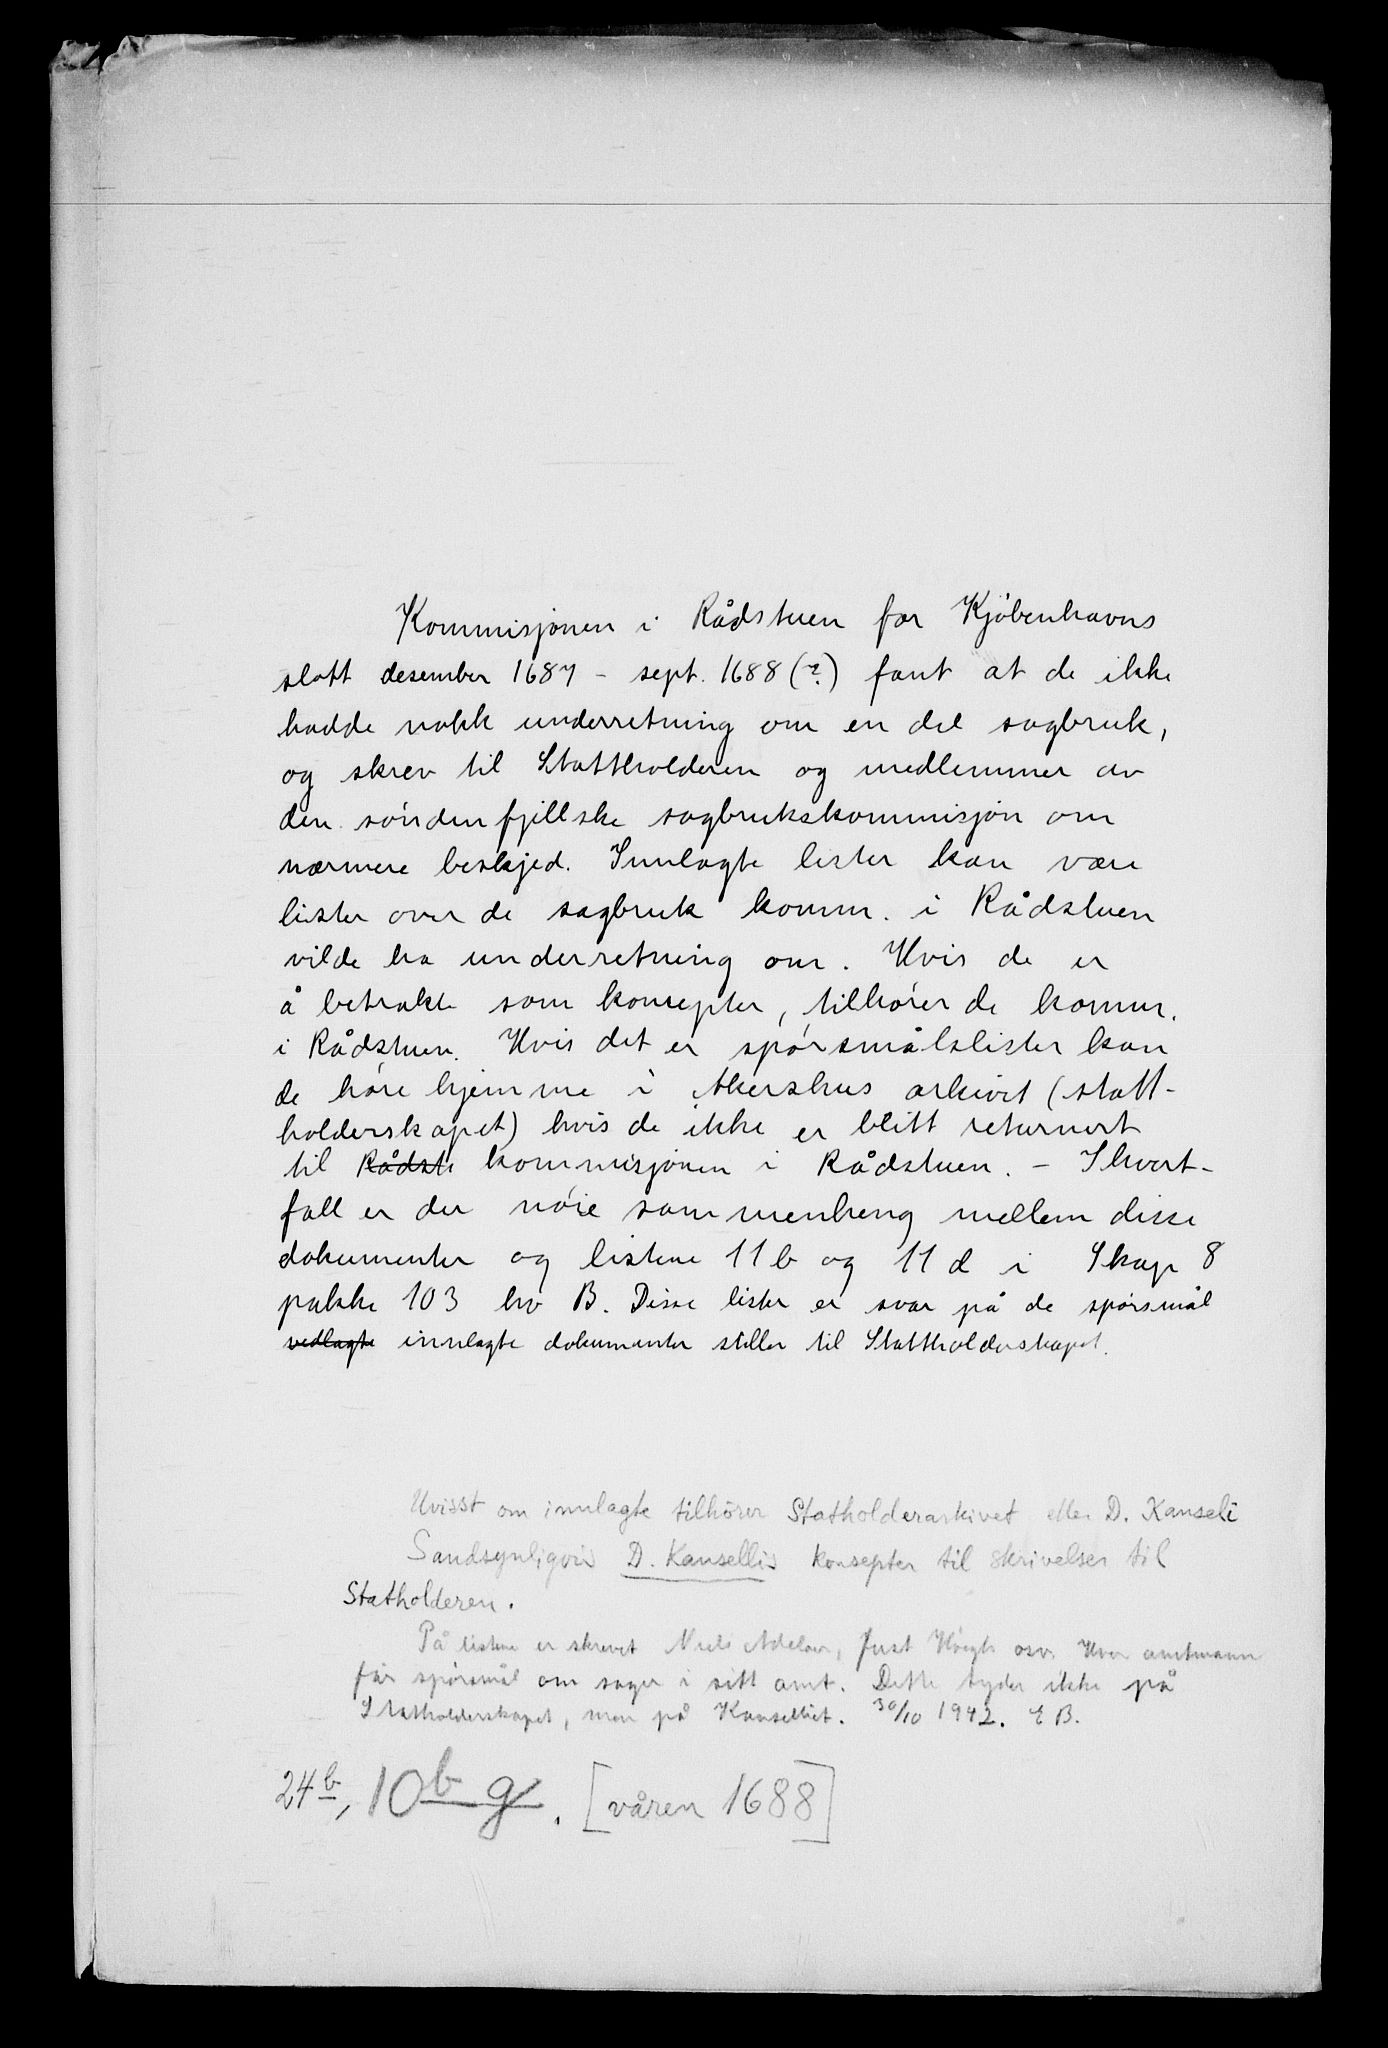 Kommisjonen i Rådstuen for Kjøbenhavns
slott desember 1687 - sept. 1688 (?) fant at de ikke
hadde nokk underretning om en del sagbruk,
og skrev til Stattholderen og medlemmer av
den søndenfjellske sagbrukskommisjon om
nærmere beskjed. Innlagte lister kan være
lister over de sagbruk komm. i Rådstuen
vilde ha underretning om. Hvis de er
å betrakte som konsepter, tilhører de komm.
i Rådstuen. Hvis det er spørsmålslister kan
de høre hjemme i Akershus arkivet (statt-
holderskapet) hvis de ikke er blitt returnert
til Rådst kommisjonen i Rådstuen. - I hvert-
fall er der nøie sammenheng mellem disse
dokumenter og listene 11 b og 11 d i Skap 8
pakke 103 lit B. Disse lister er svar på de spørsmål
vedlagte innlagte dokumenter stiller til Stattholderskapet.
Uvisst om innlagte tilhører Statholderarkivet eller D. Kanseli
Sandsynligvis D. Kansellis konsepter til skrivelser til
Statholderen.
På listene er skrevet Niels Adelaer, Just Høegh osv. Hver amtmann
får spørsmål om sager i sitt amt. Dette tyder ikke på
Statholderskapet, men på Kanselliet. 30/10 1942. E B.
24 b, 10 b g. [våren 1688]